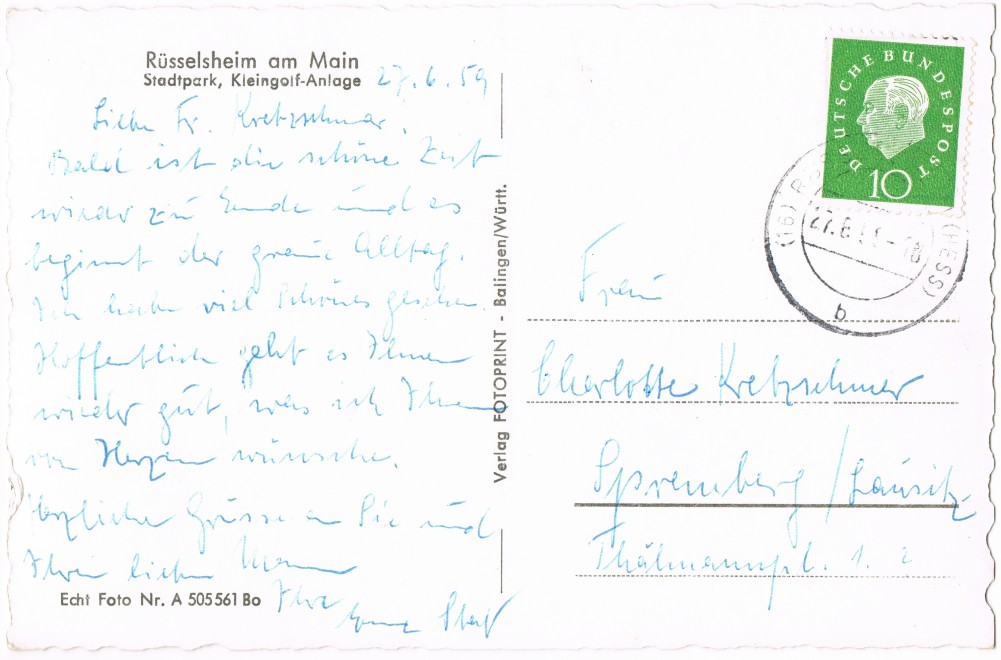 Rüsselsheim am Main
Stadtpark, Kleingolf-Anlage
27.6.59
Liebe Fr. Kretzschmar,
Bald ist die schöne Zeit
wieder zu Ende und es
beginnt der graue Alltag.
Ich habe viel Schönes gesehen.
Hoffentlich geht es Ihnen
wieder gut, was ich Ihnen
von Herzen wünsche.
Herzliche Grüsse an Sie und
Ihren lieben Mann
Ihre
Echt Foto Nr. A 505561 Bo
Verlag FOTOPRINT - Balingen/Württ.
DEUTSCHE BUNDESPOST
10
(16)
(HESS)
27.6.59-18
b
Frau
Charlotte Kretzschmar
Spremberg / Lausitz
Thälmannpl. 1.2